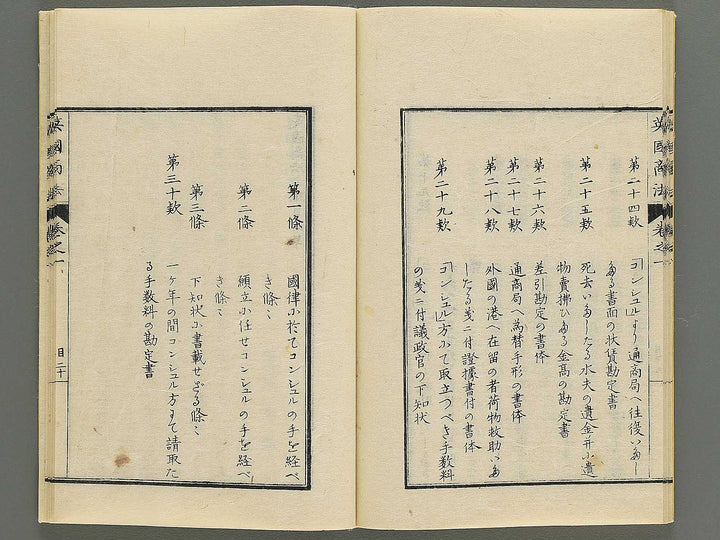 英國商法
卷之一
第二十四欵
「コンシュル」ゟり通商局へ往復いたし
たる書面の状賃勘定書
第二十五欵
死去いたしたる水夫の遺金并小遺
物賣拂ひたる金高の勘定書
第二十六欵
差引勘定の書体
第二十七欵
通商局へ為替手形の書体
第二十八欵
外國の港へ在留の者荷物救助いた
したる義ニ付證據書付の書体
第二十九欵
「コンシュル」方小て取立つべき手數料
の義ニ付議政官の下知状
第一條
國律小於てコンシュルの手を経べ
き條〻
第二條
願立小任せコンシュルの手を経べ
き條〻
第三條
下知状小書載せざる條〻
第三十欵
一ケ年の間コンシュル方まて請取た
る手數料の勘定書
英國商法
卷之一
目二十